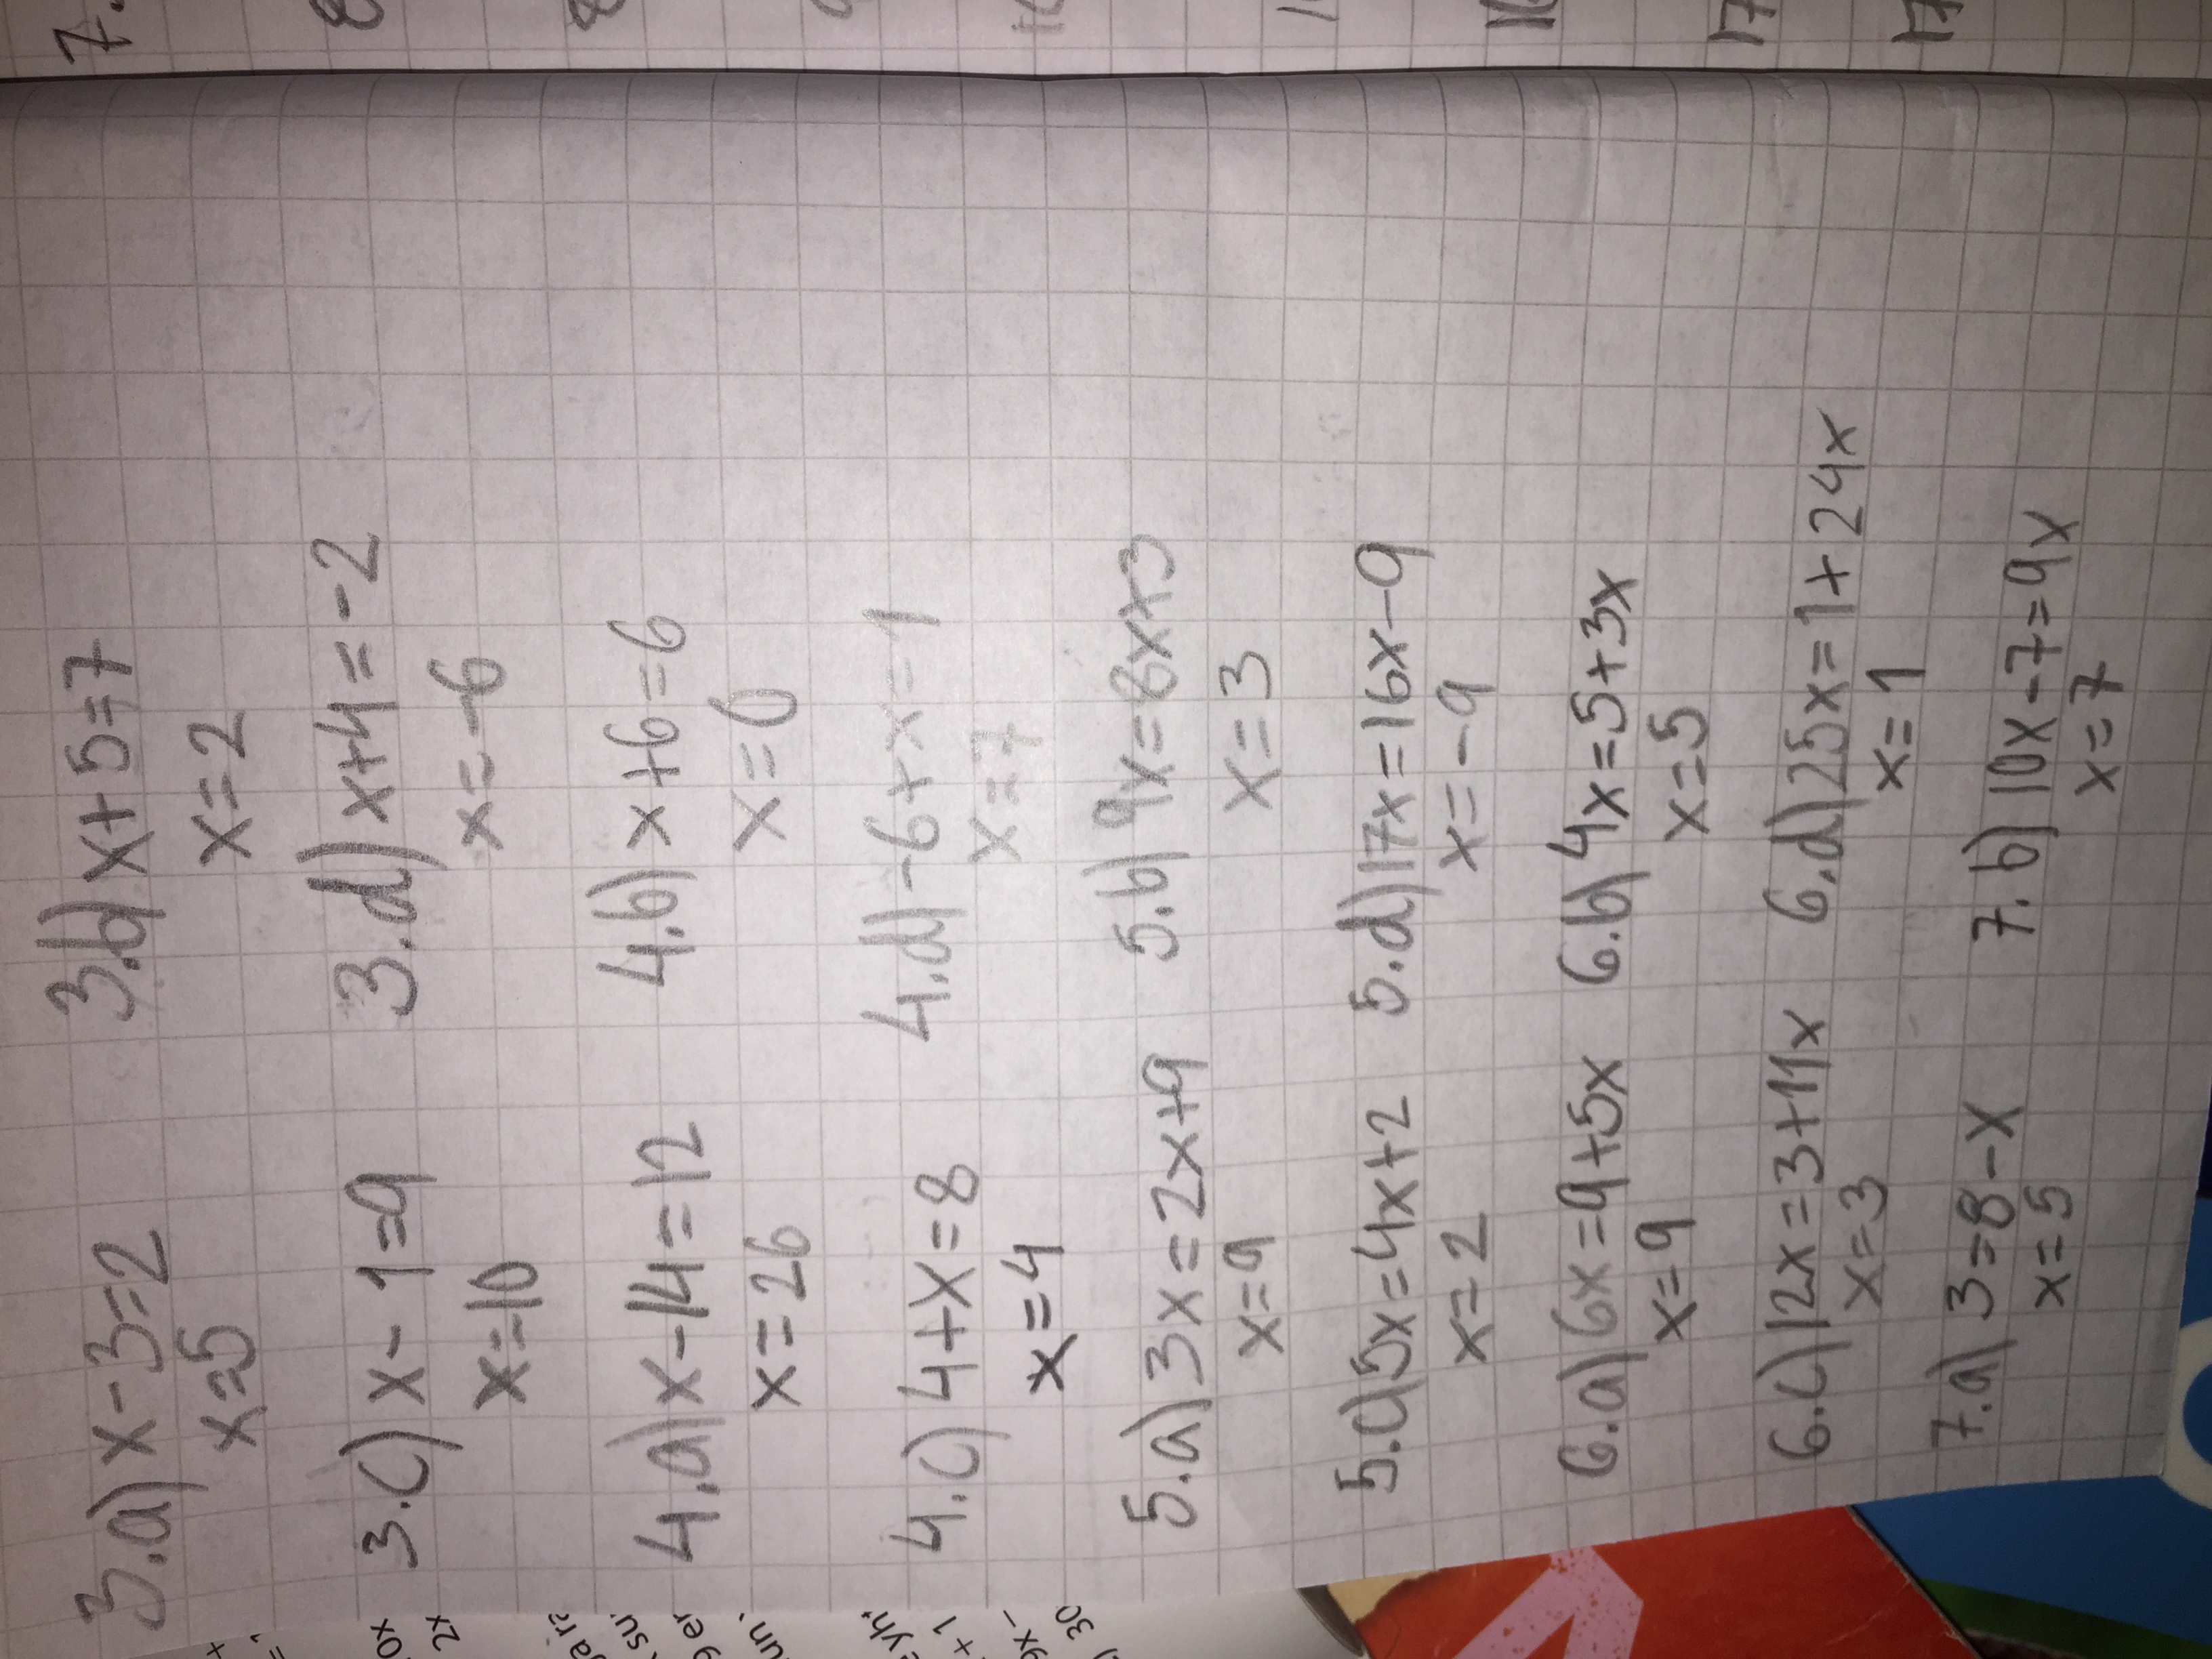 3.a) x-3=2 3.b) x+5=7
x=5 x=2
3.c) x-1=9 3.d) x+4=-2
x=10 x=-6
4.a) x-14=12 4.b) x+6=6
x=26 x=0
4.c) 4+x=8 4.d) -6+x=1
x=4 x=7
5.a) 3x=2x+9 5.b)
x=9 x=3
5.c) 5x=4x+2 5.d) 17x=16x-9
x=2 x=-9
6.a) 6x=9+5x 6.b) 4x=5+3x
x=9 x=5
6.c) 12x=3+11x 6.d) 25x=1+24x
x=3 x=1
7.a) 3=8-x 7.b) 10x-7=9x
x=5 x=7
7.
17
17
0x
2x
su
ger
un
eyh
+1
9x-
30